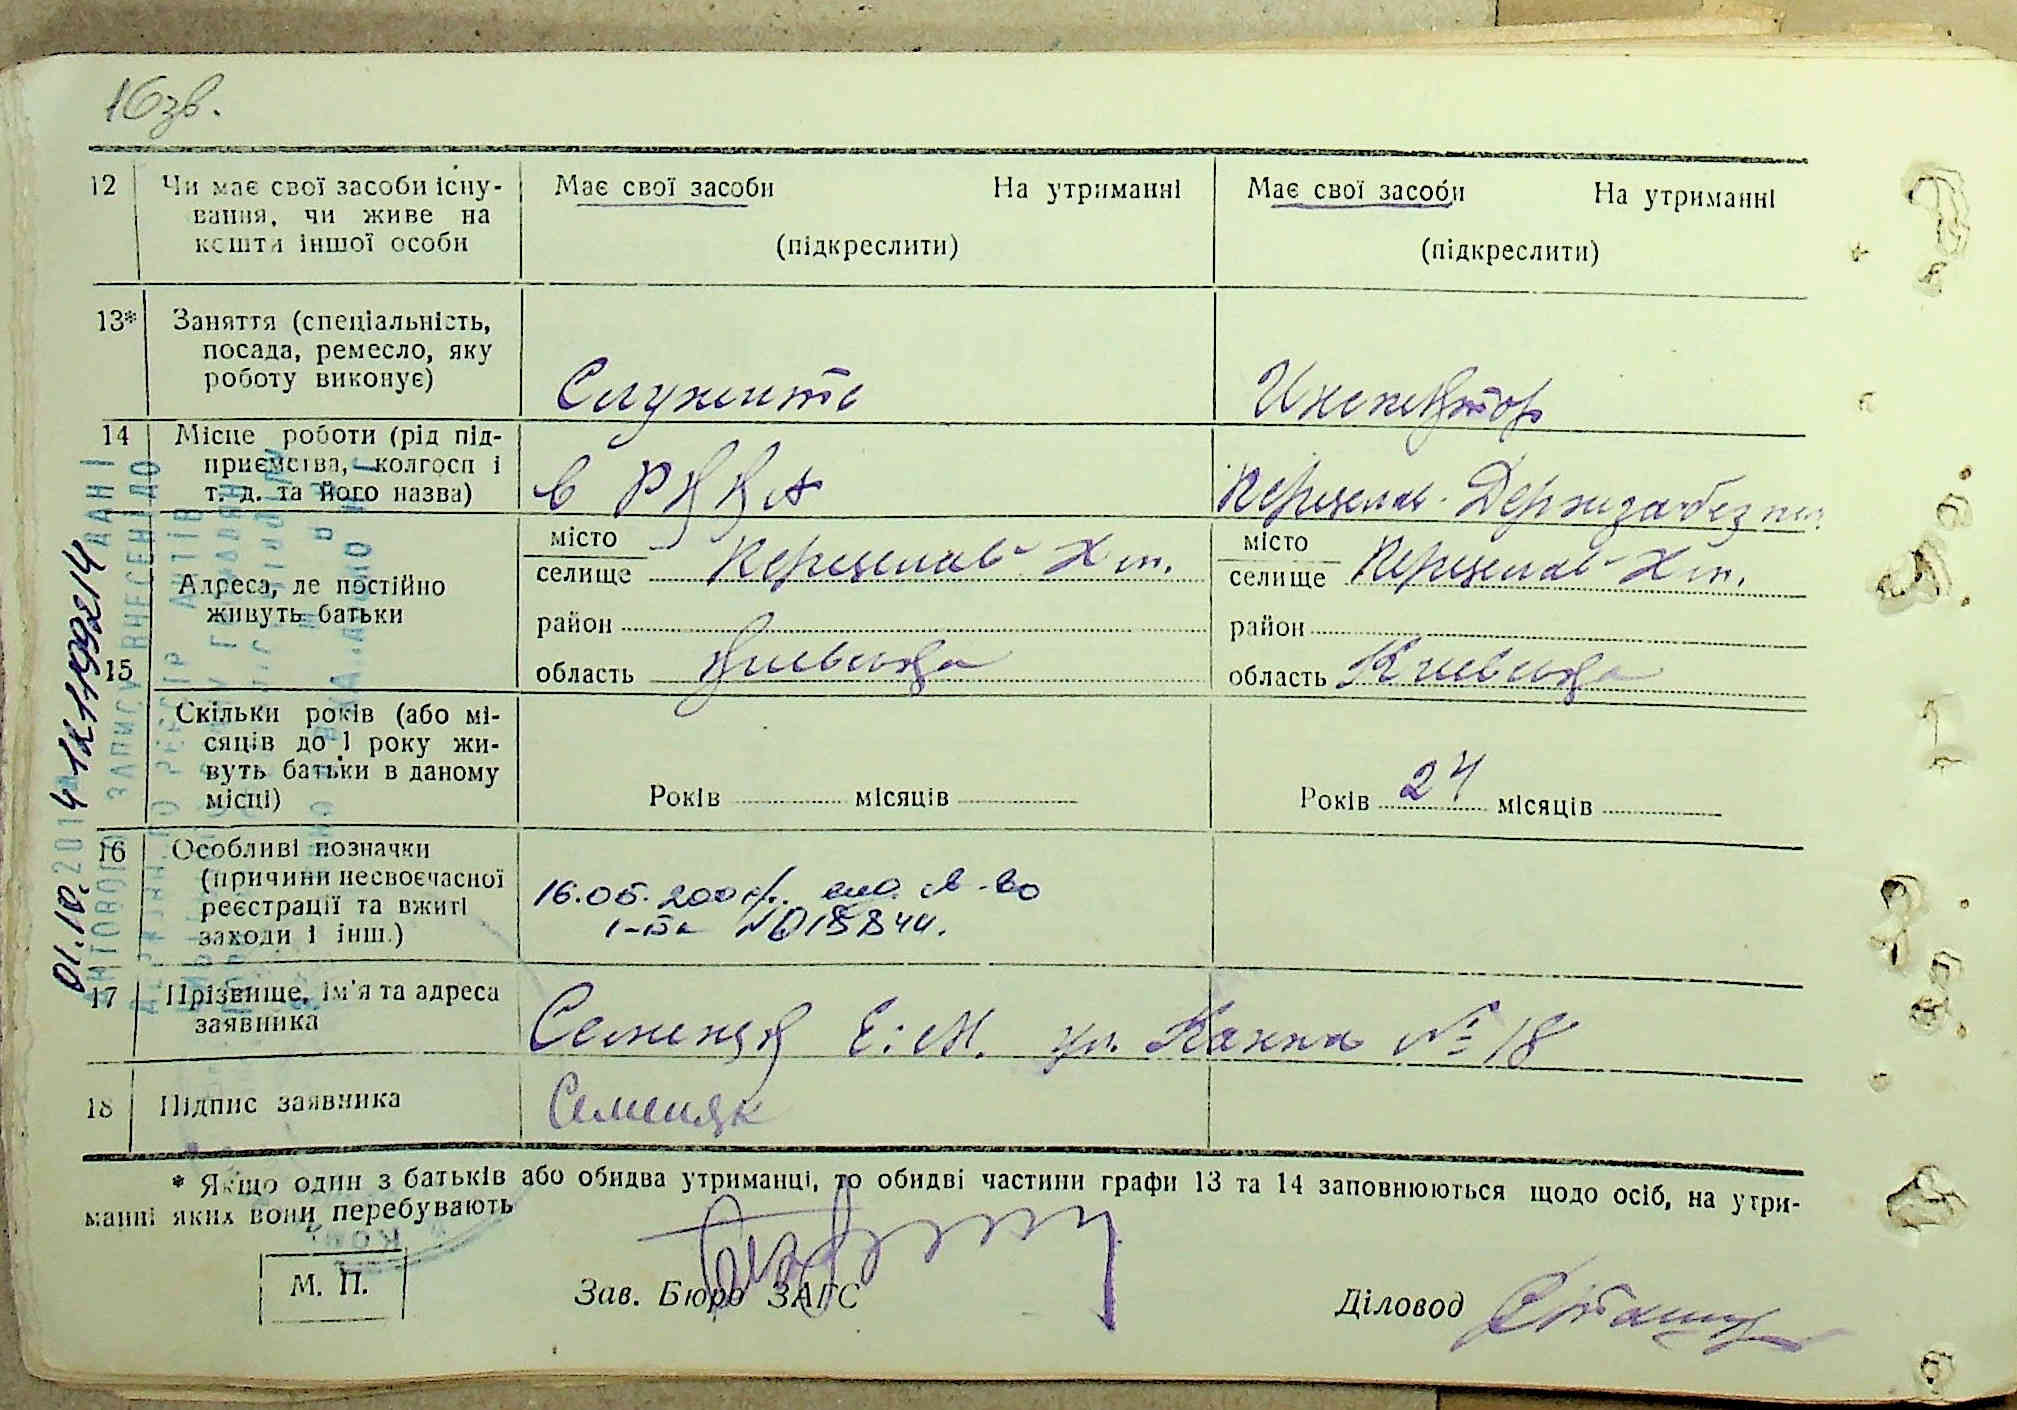 16зв.
12 Чи має свої засоби існу-
вання, чи живе на
кошти іншої особи
Має свої засоби На утриманні
(підкреслити)
Має свої засоби На утриманні
(підкреслити)
13* Заняття (спеціальність,
посада, ремесло, яку
роботу виконує)
Служить
Инспектор
14 Місце роботи (рід під-
приємства, колгосп і
т. д. та його назва)
в РККА
Переяслав.
15 Адреса, де постійно
живуть батьки
місто
селище Переяслав-Хм.
район
область Київська
місто
селище Переяслав-Хм.
район
область Київська
Скільки років (або мі-
сяців до 1 року жи-
вуть батьки в даному
місці)
Років місяців
Років 24 місяців
16 Особливі позначки
(причини несвоєчасної
реєстрації та вжиті
заходи і інш.)
16.05. св-во
17 Прізвище, ім'я та адреса
заявника
Семеняк Е. М. ул. № 18
18 Підпис заявника
Семеняк
* Якщо один з батьків або обидва утриманці, то обидві частини графи 13 та 14 заповнюються щодо осіб, на утри-
манні яких вони перебувають
М. П.
Зав. Бюро ЗАГС
Діловод
01.10.2014